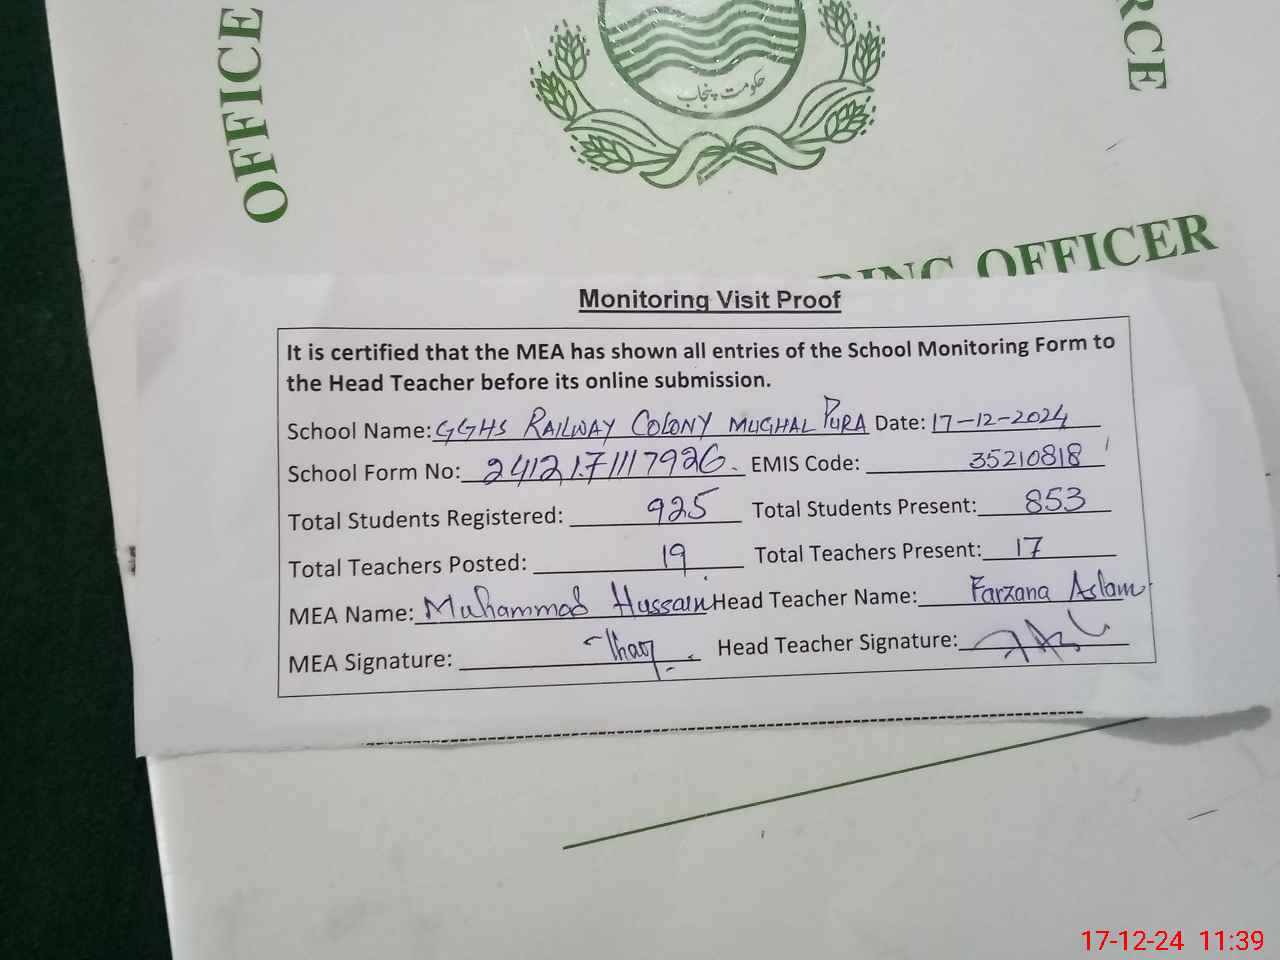 OFFICE
RCE
حکومت پنجاب
RING OFFICER
Monitoring Visit Proof
It is certified that the MEA has shown all entries of the School Monitoring Form to
the Head Teacher before its online submission.
School Name: GGHS RAILWAY COLONY MUGHAL PURA Date: 17-12-2024
School Form No: 2412171117926. EMIS Code: 35210818
Total Students Registered: 925 Total Students Present: 853
Total Teachers Posted: 19 Total Teachers Present: 17
MEA Name: Muhammad Hussain Head Teacher Name: Farzana Aslam
MEA Signature: Head Teacher Signature:
17-12-24 11:39